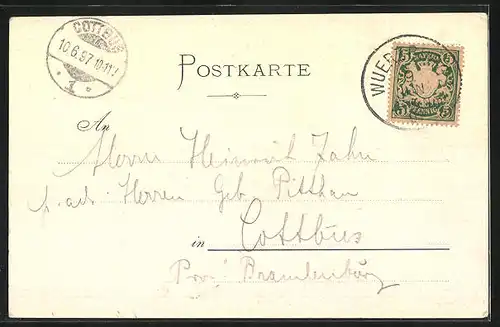 COTTBUS
10.6.97.10-11V.
* 1 *
POSTKARTE
WUER
5 5
PFENNIG
5 5
An
Herrn Heinrich Jahn
p. adr. Herren Geb. Pitthan
in Cottbus
Prov. Brandenburg